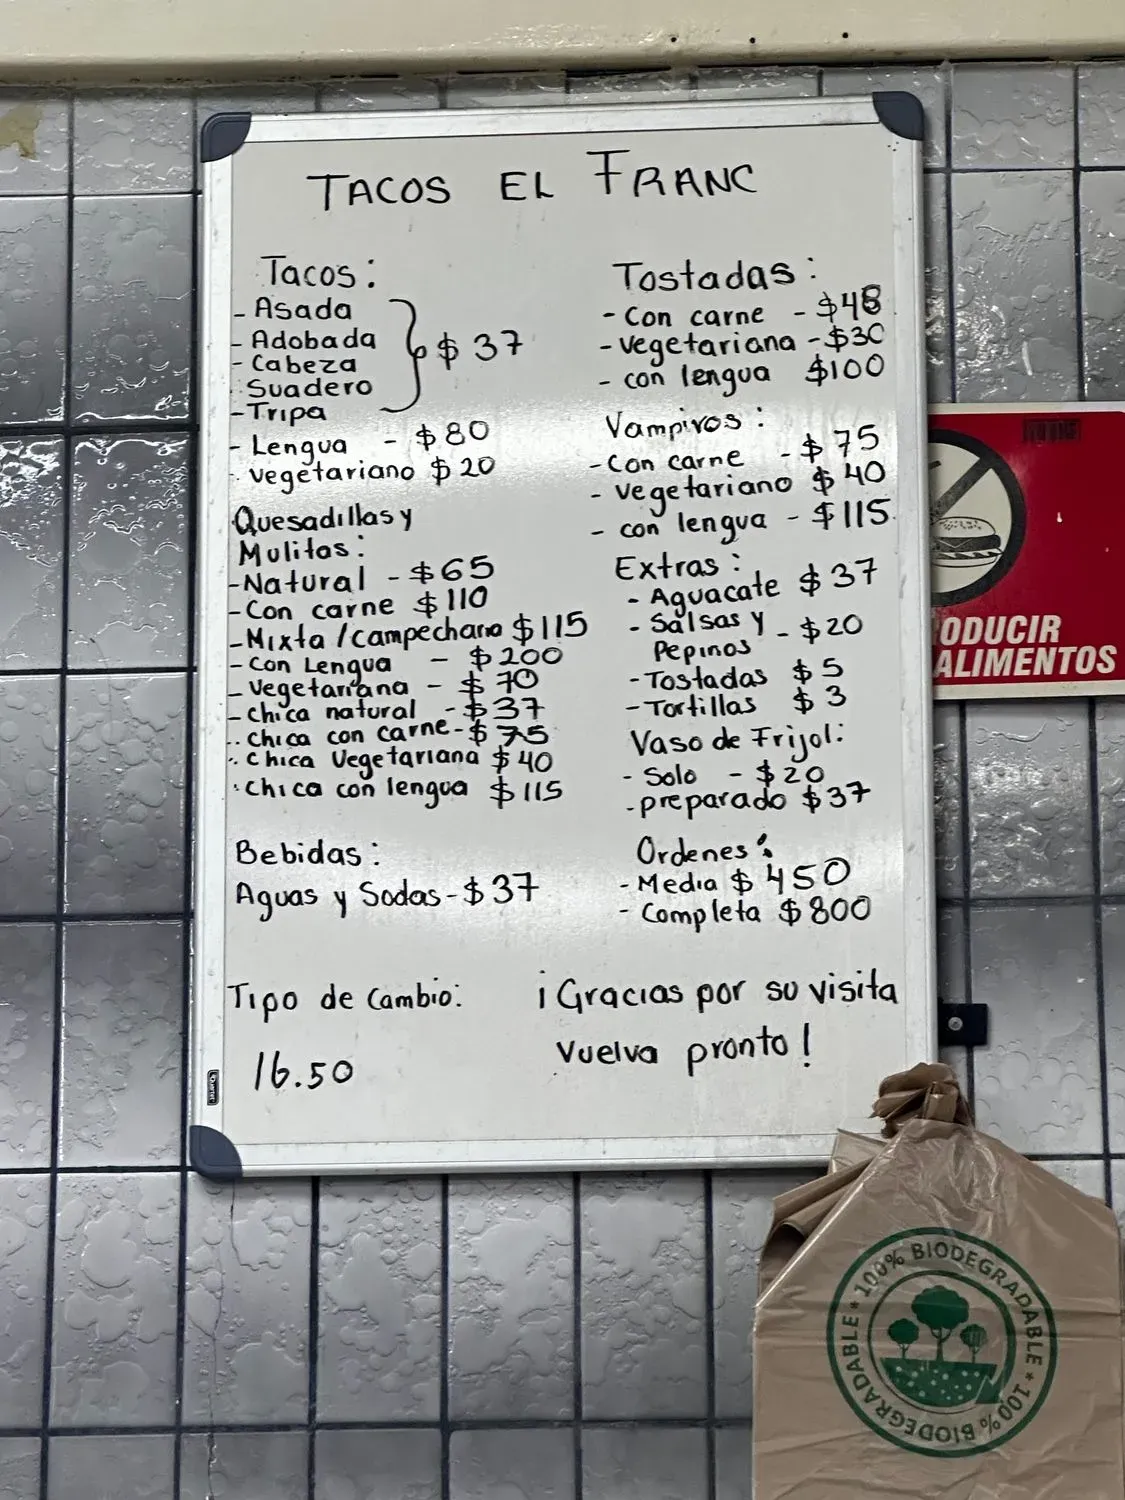 TACOS EL FRANC
Tacos:
- Asada
- Adobada
- Cabeza
Suadero
- Tripa
$ 37
- Lengua - $80
- vegetariano $20
Quesadillas y
Mulitas:
- Natural - $65
- Con carne $110
- Mixta / campechana $115
- Con Lengua - $200
- Vegetariana - $70
- Chica natural - $37
- Chica con carne - $75
- Chica Vegetariana $40
- Chica con lengua $115
Bebidas:
Aguas y Sodas - $37
Tipo de Cambio:
16.50
Tostadas:
- Con carne - $48
- vegetariana - $30
- con lengua $100
Vampiros:
- Con carne - $75
- vegetariano $40
- con lengua - $115
Extras:
- Aguacate $37
- Salsas y
Pepinos - $20
- Tostadas $5
- Tortillas $3
Vaso de Frijol:
- Solo - $20
- preparado $37
Ordenes:
- Media $450
- Completa $800
¡Gracias por su visita
Vuelva pronto!
ODUCIR
ALIMENTOS
100% BIODEGRADABLE * 100% BIODEGRADABLE *